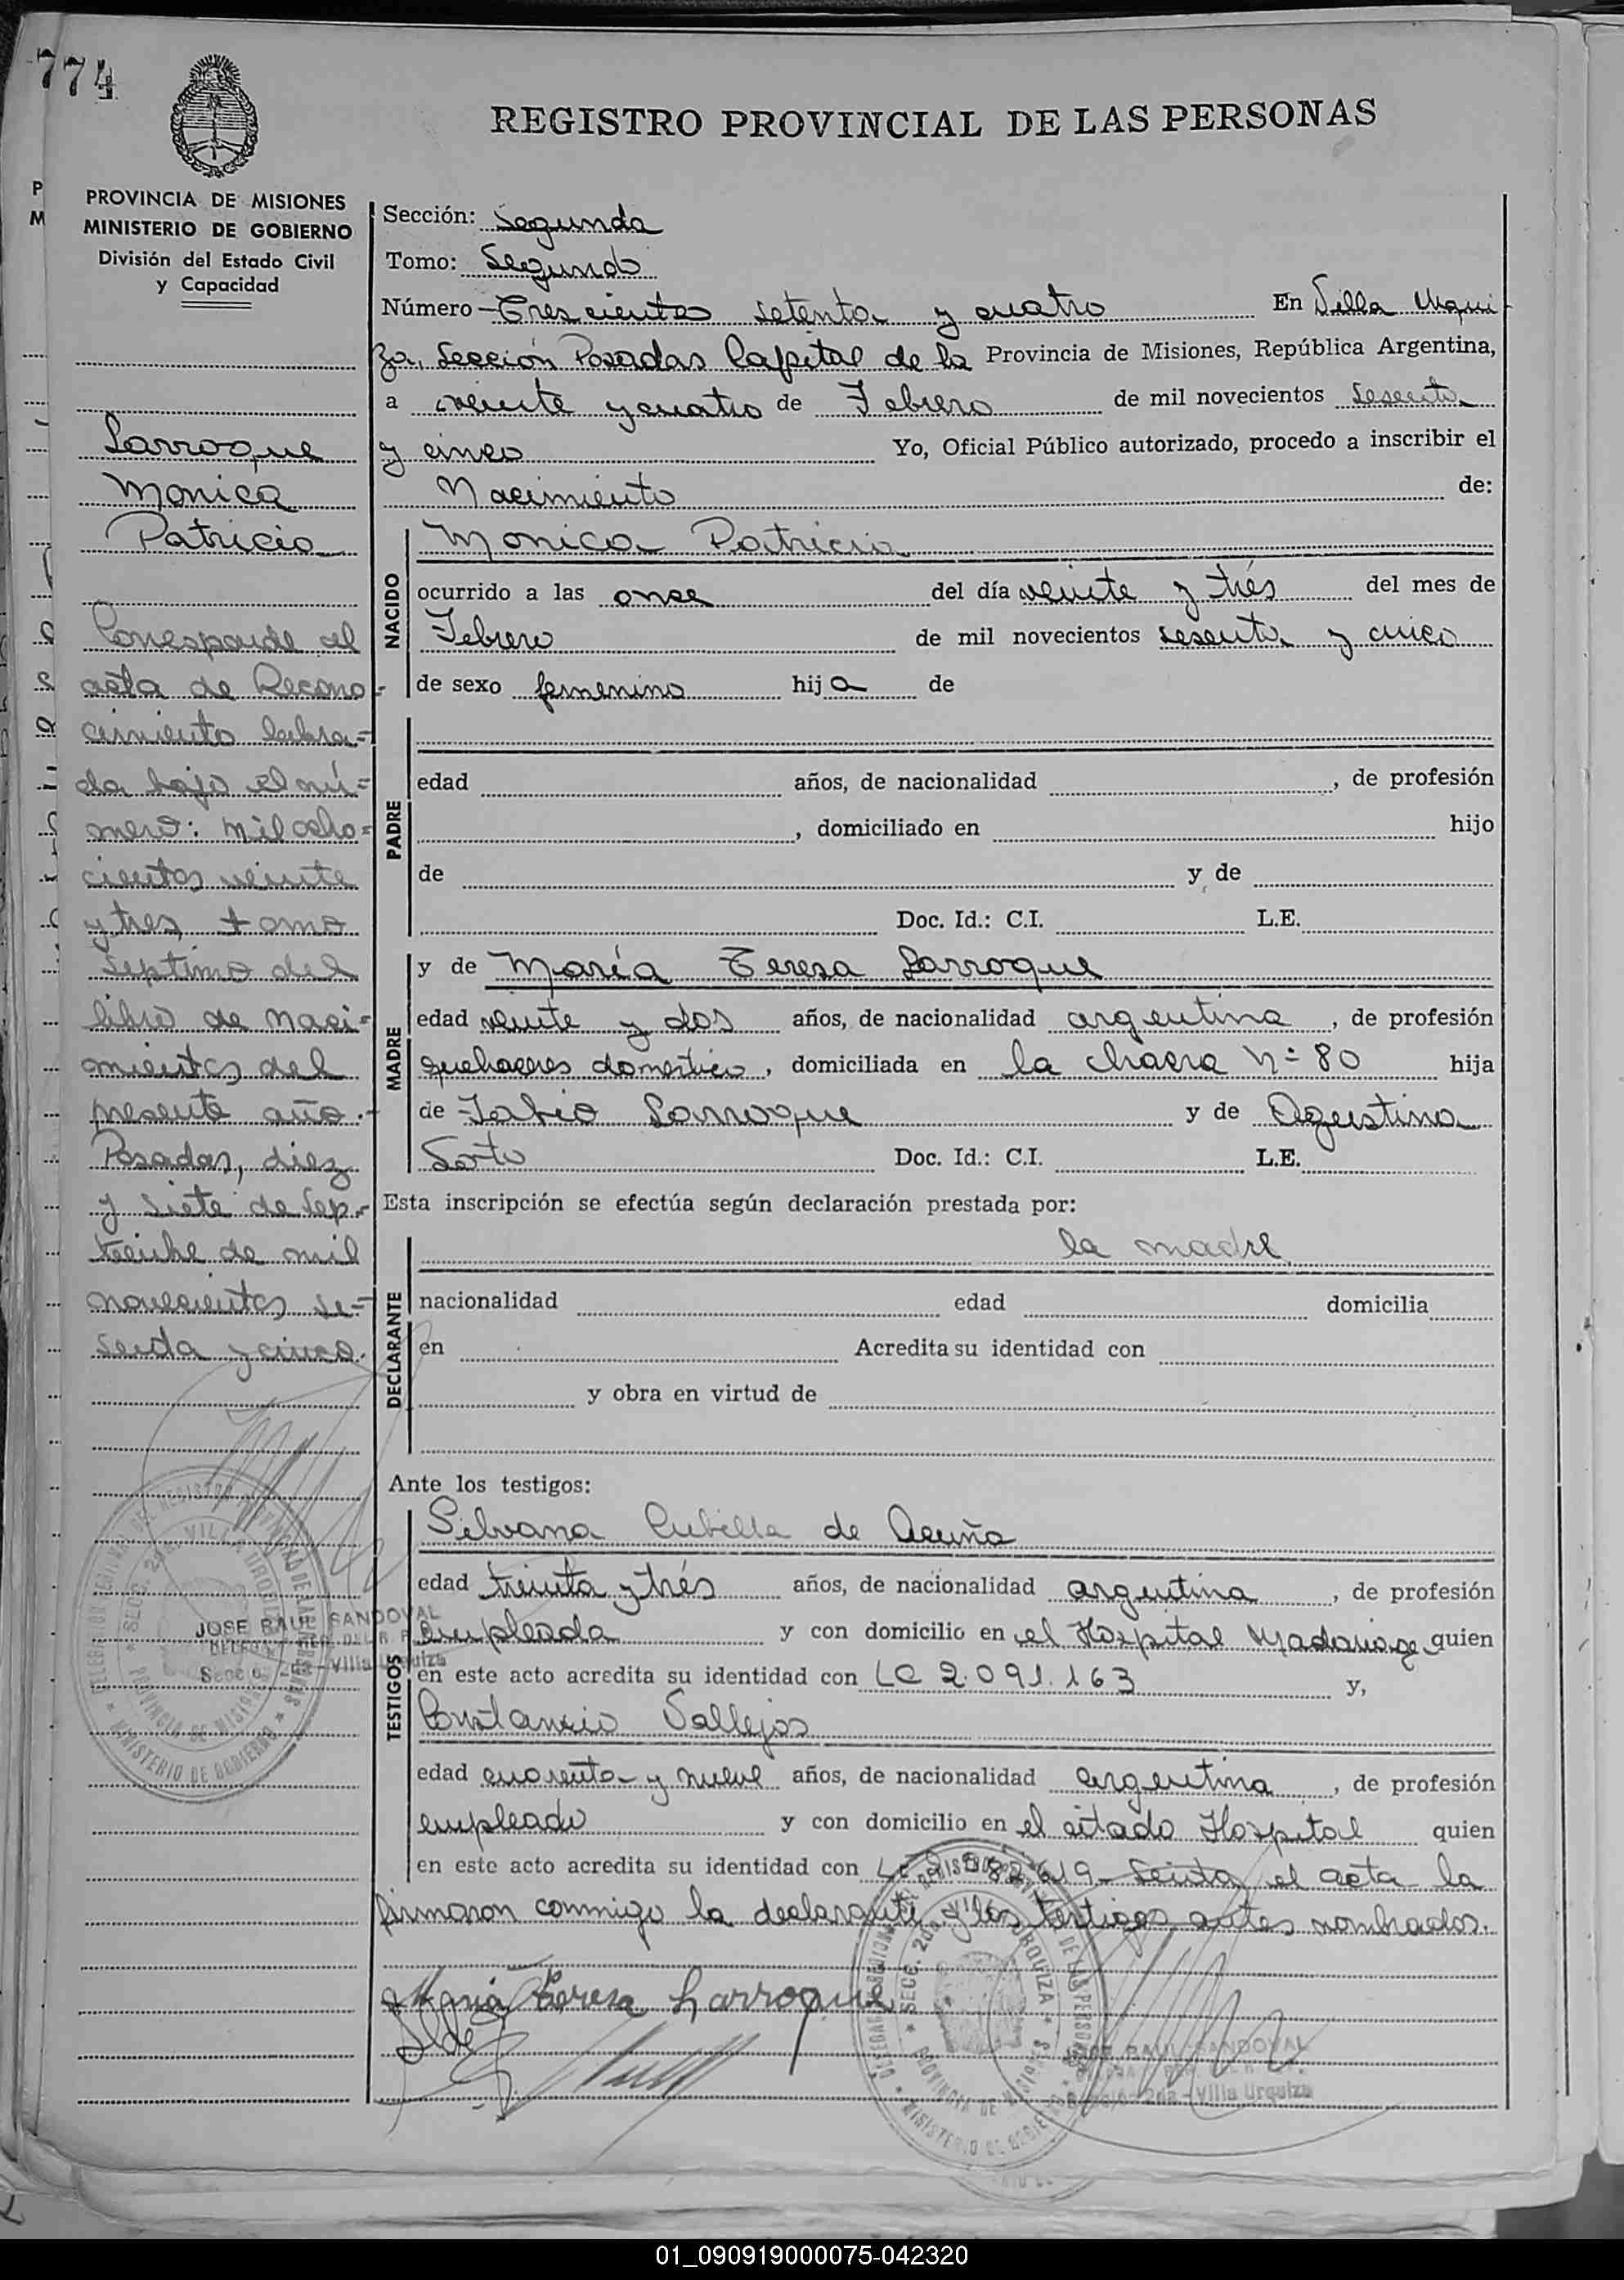 774
REGISTRO PROVINCIAL DE LAS PERSONAS
PROVINCIA DE MISIONES
MINISTERIO DE GOBIERNO
División del Estado Civil
y Capacidad
Larroque
Monica
Patricia
Corresponde al
acta de Recono-
cimiento labra-
da bajo el nú-
mero: mil ocho-
cientos veinte
y tres tomo
Septimo del
libro de naci-
mientos del
presente año.-
Posadas, diez
y siete de Sep-
tiembre de mil
novecientos se-
senta y cinco.
JOSE RAUL SANDOVAL
Villa Urquiza
Sección: Segunda
Tomo: Segundo
Número - Trescientos setenta y cuatro En Villa Urqui
za, Sección Posadas Capital de la Provincia de Misiones, República Argentina,
a veinte y cuatro de Febrero de mil novecientos sesenta
y cinco Yo, Oficial Público autorizado, procedo a inscribir el
Nacimiento de:
NACIDO
Monica Patricia
ocurrido a las once del día veinte y trés del mes de
Febrero de mil novecientos sesenta y cinco
de sexo femenino hija de
PADRE
edad años, de nacionalidad , de profesión
, domiciliado en hijo
de y de
Doc. Id.: C.I. L.E.
MADRE
y de María Teresa Larroque
edad veinte y dos años, de nacionalidad argentina, de profesión
quehaceres domestico, domiciliada en la chacra Nº 80 hija
de Fabio Larroque y de Agustina
Soto Doc. Id.: C.I. L.E.
Esta inscripción se efectúa según declaración prestada por:
DECLARANTE
la madre
nacionalidad edad domicilia
en Acredita su identidad con
y obra en virtud de
Ante los testigos:
TESTIGOS
Silvana Cubilla de Acuña
edad treinta y trés años, de nacionalidad argentina, de profesión
empleada y con domicilio en el Hospital Madariaga quien
en este acto acredita su identidad con LC 2.091.163 y,
Constancio Vallejos
edad cuarenta y nueve años, de nacionalidad argentina, de profesión
empleado y con domicilio en el citado Hospital quien
en este acto acredita su identidad con Leida el acta la
firmaron conmigo la declarante y los testigos antes nombrados.
Maria Teresa Larroque
RAUL SANDOVAL
2da - Villa Urquiza
DELEGACION REGISTRO PROVINCIAL DE LAS PERSONAS
SECC. 2da. VILLA URQUIZA
PROVINCIA DE MISIONES
MINISTERIO DE GOBIERNO
01_090919000075-042320